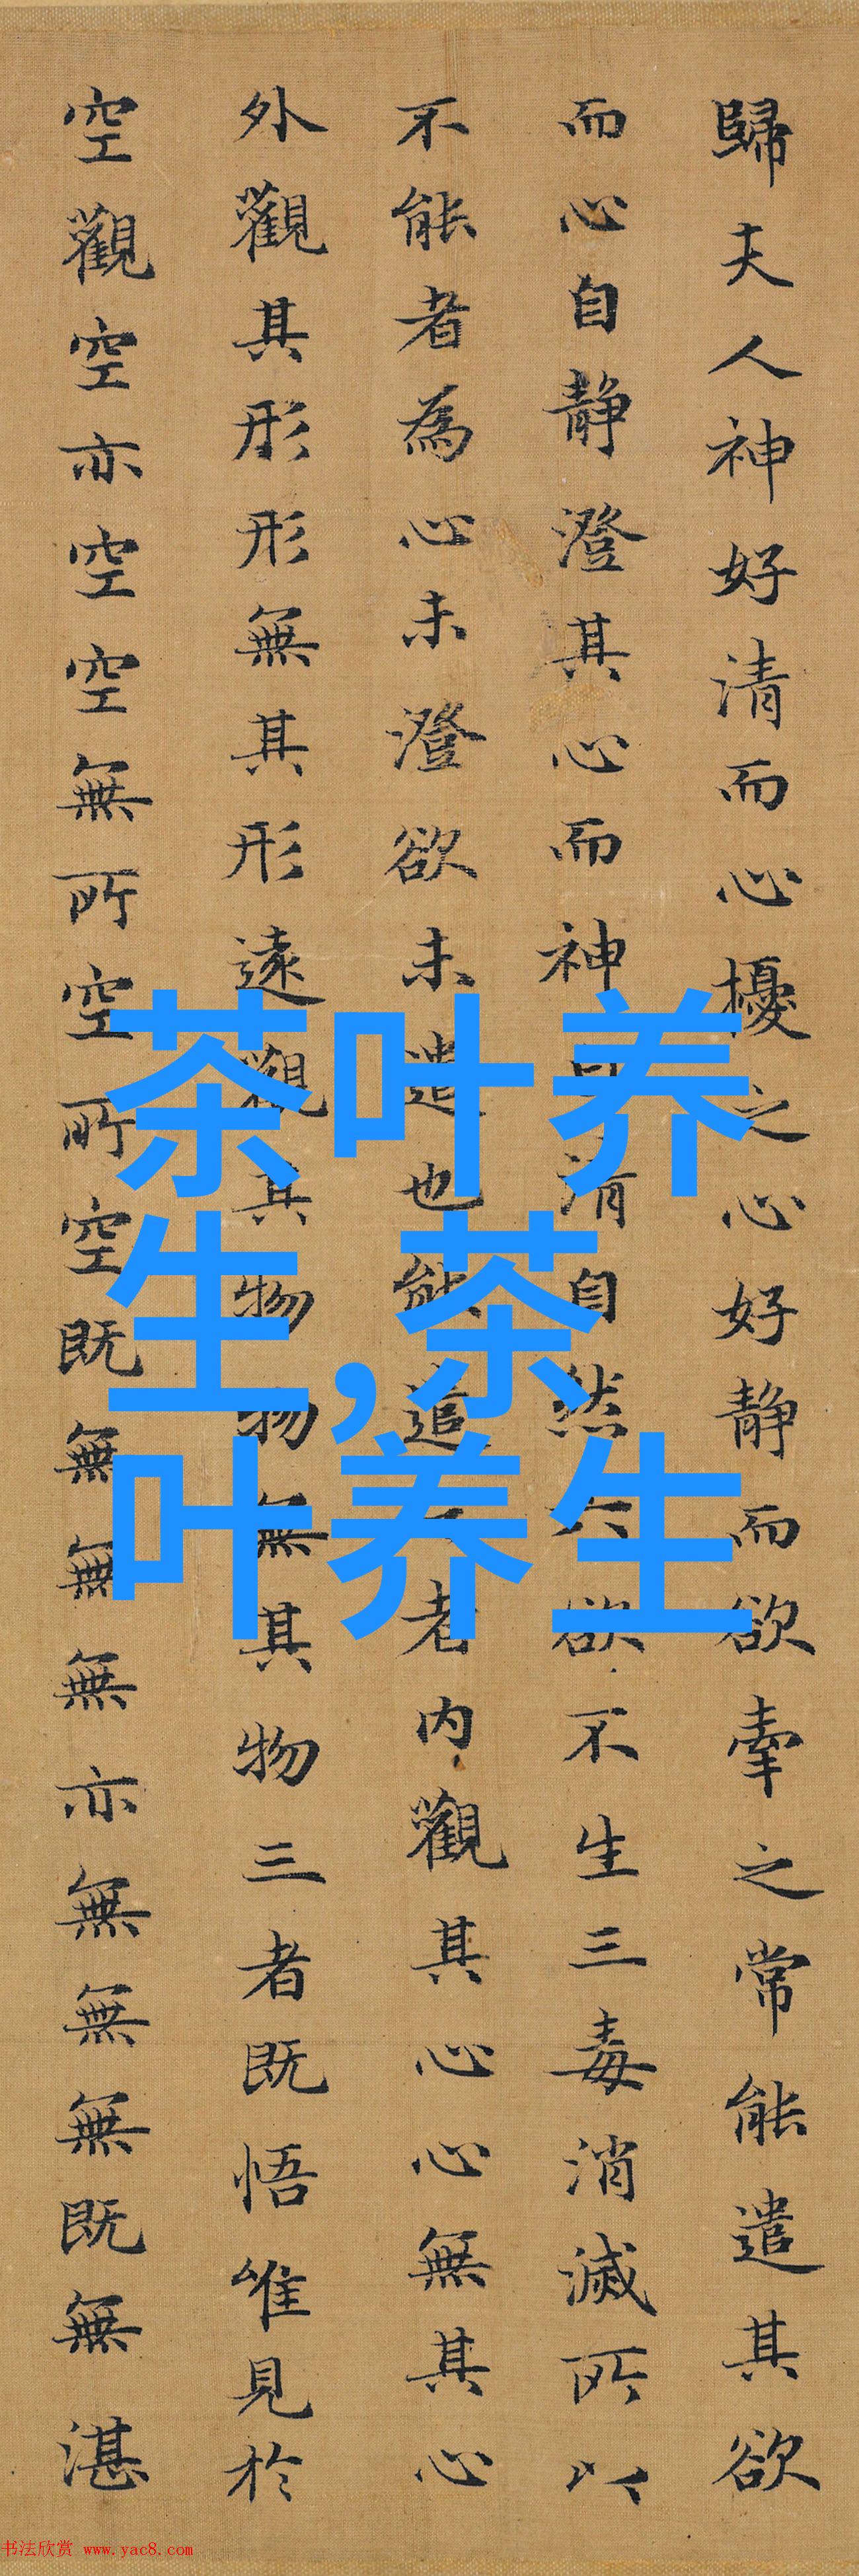 歸夫人神好清而心擾之心好静而欲牽之常能遣其欲
而心自静澄其心而神自清自然六欲不生三毒消滅所以
不能者為心未澄欲未遣也能遣者内觀其心心無其心
外觀其形形無其形遠觀其物物無其物三者既悟唯見於
空觀空亦空空無所空所空既無無無亦無無無既無湛
茶叶养
生,茶
叶养生
书法欣赏 www.yac8.com